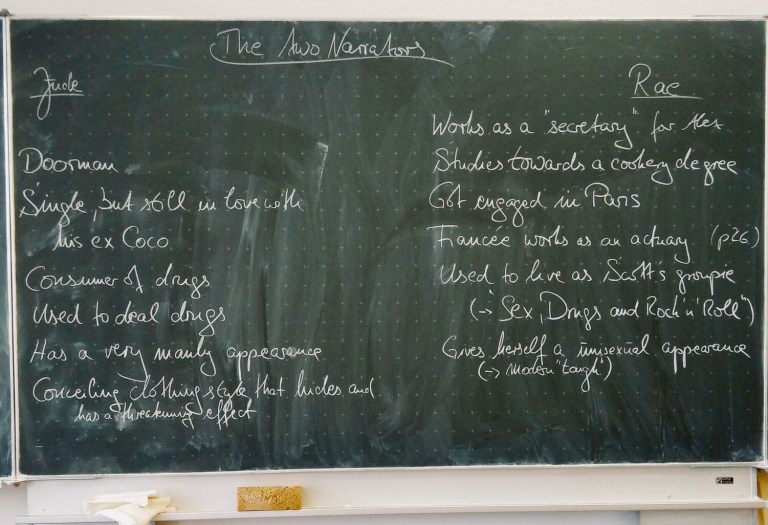 The two Narrators
Jude
Doorman
Single, but still in love with
his ex Coco
Consumer of drugs
Used to deal drugs
Has a very manly appearance
Conceiling clothing style that hides and
has a threatening effect
Rae
Works as a "secretary" for Alex
Studies towards a cookery degree
Got engaged in Paris
Fiancée works as an actuary (p26)
Used to live as Scott's groupie
(→ Sex, Drugs and Rock'n'Roll")
Gives herself a unisexual appearance
(→ modern "tough")